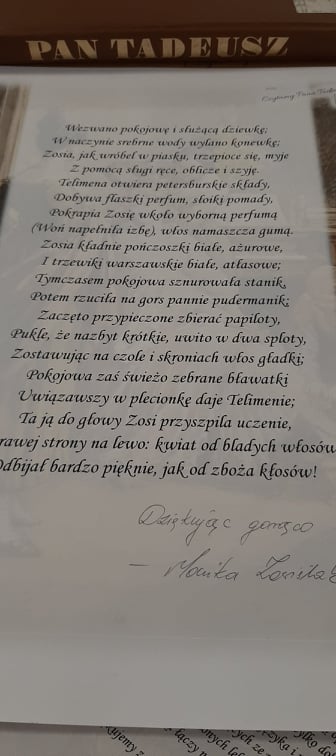 PAN TADEUSZ
Czytamy Pana
Wezwano pokojowę i służącą dziewkę;
W naczynie srebrne wody wylano konewkę;
Zosia, jak wróbel w piasku, trzepioce się, myje
Z pomocą sługi ręce, oblicze i szyję.
Telimena otwiera petersburskie składy,
Dobywa flaszki perfum, słoiki pomady,
Pokrapia Zosię wkoło wyborną perfumą
(Woń napełniła izbę), włos namaszcza gumą.
Zosia kładnie pończoszki białe, ażurowe,
I trzewiki warszawskie białe, atłasowe;
Tymczasem pokojowa sznurowała stanik,
Potem rzuciła na gors pannie pudermanik;
Zaczęto przypieczone zbierać papiloty,
Pukle, że nazbyt krótkie, uwito w dwa sploty,
Zostawując na czole i skroniach włos gładki;
Pokojowa zaś świeżo zebrane bławatki
Uwiązawszy w plecionkę daje Telimenie;
Ta ją do głowy Zosi przyszpila uczenie,
prawej strony na lewo: kwiat od bladych włosów
Odbijał bardzo pięknie, jak od zboża kłosów!
Dziękując gorąco
– Monika